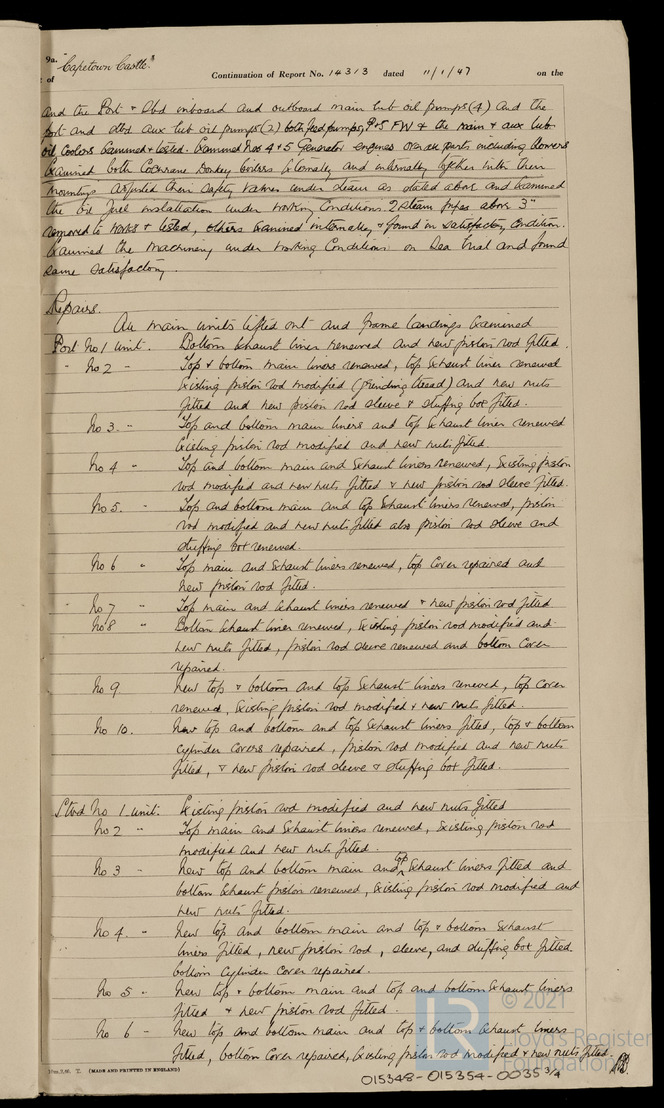 9a.
of
"Capetown Castle"
Continuation of Report No. 14313 dated 11/1/47 on the
and the Port & Stbd inboard and outboard main lub oil pumps (4) and the
port and stbd aux lub oil pumps (2) both feed pumps, P+S FW & the main & aux lub
oil coolers examined & tested. Examined Nos 4 & 5 Generator engines overse parts including blowers
Examined both Cochrane Donkey boilers externally and internally together with their
mountings adjusted their safety valves under steam as stated above and examined
the oil fuel installation under working conditions. 2 Steam pipes above 3"
removed to works & tested, others examined internally & found in satisfactory condition.
Examined the machinery under working conditions on sea trial and found
same satisfactory.
Repairs.
All main units lifted out and frame landings examined
Port No 1 unit. Bottom exhaust liner renewed and new piston rod fitted.
" No 2 " Top & bottom main liners renewed, top exhaust liner renewed
existing piston rod modified (grinding thread) and new nuts
fitted and new piston rod sleeve & stuffing box fitted.
No 3. " Top and bottom main liners and top exhaust liner renewed
existing piston rod modified and new nuts fitted.
No 4 " Top and bottom main and exhaust liners renewed, existing piston
rod modified and new nuts fitted & new piston rod sleeve fitted.
No 5. " Top and bottom main and top exhaust liners renewed, piston
rod modified and new nuts fitted also piston rod sleeve and
stuffing box renewed.
No 6 " Top main and exhaust liners renewed, top cover repaired and
new piston rod fitted.
" No 7 " Top main and exhaust liners renewed & new piston rod fitted
No 8 " Bottom exhaust liner renewed, existing piston rod modified and
new nuts fitted, piston rod sleeve renewed and bottom cover
repaired.
No 9 New top & bottom and top exhaust liners renewed, top cover
renewed, existing piston rod modified & new nuts fitted.
No 10. New top and bottom and top exhaust liners fitted, top & bottom
cylinder covers repaired, piston rod modified and new nuts
fitted, & new piston rod sleeve & stuffing box fitted.
Stbd No 1 unit. Existing piston rod modified and new nuts fitted
No 2 " Top main and exhaust liners renewed, existing piston rod
modified and new nuts fitted.
No 3 " New top and bottom main and top exhaust liners fitted and
bottom exhaust piston renewed, existing piston rod modified and
new nuts fitted.
No 4. " New top and bottom main and top & bottom exhaust
liners fitted, new piston rod, sleeve, and stuffing box fitted
bottom cylinder cover repaired.
No 5 " New top & bottom main and top and bottom exhaust liners
fitted & new piston rod fitted.
No 6 " New top and bottom main and top & bottom exhaust liners
fitted, bottom cover repaired, existing piston rod modified & new nuts fitted.
(MADE AND PRINTED IN ENGLAND)
015348-015354-0035 3/4
LR © 2021
Lloyd's Register
Foundation